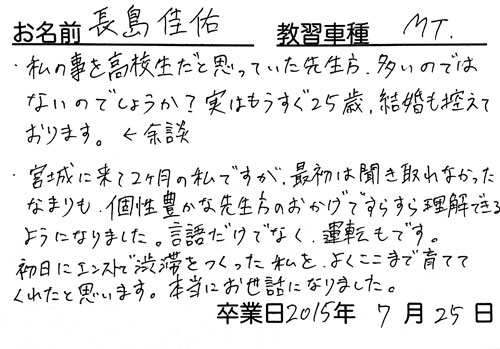 お名前 長島佳佑 教習車種 MT.
・私の事を高校生だと思っていた先生方、多いのでは
ないのでしょうか?実はもうすぐ25歳、結婚も控えて
おります。←余談
・宮城に来て2ヶ月の私ですが、最初は聞き取れなかった
なまりも、個性豊かな先生方のおかげですらすら理解できる
ようになりました。言語だけでなく、運転もです。
初日にエンストで渋滞をつくった私を、よくここまで育てて
くれたと思います。本当にお世話になりました。
卒業日2015年 7月25日